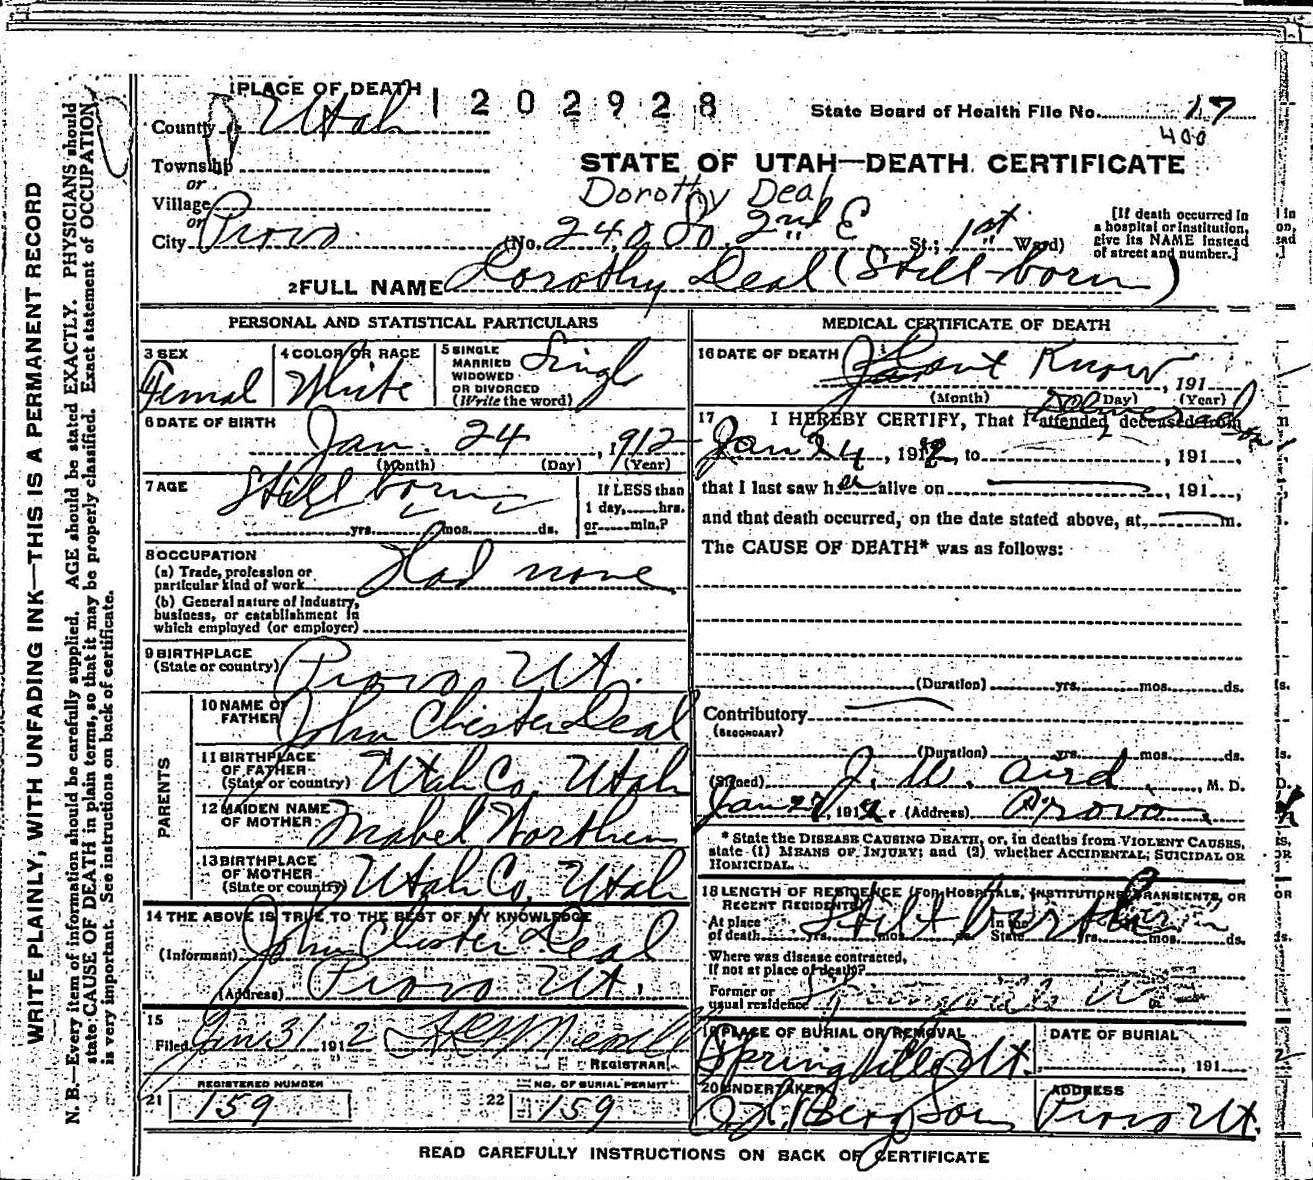 1 PLACE OF DEATH
1202928
State Board of Health File No. 17
400
County Utah
Township
or
STATE OF UTAH—DEATH CERTIFICATE
Dorothy Deal
Village
or
City Provo (No. 240 So. 2nd E St.; 1st Ward)
[If death occurred in
a hospital or institution,
give its NAME instead
of street and number.]
2 FULL NAME Dorothy Deal (Still-born)
PERSONAL AND STATISTICAL PARTICULARS
3 SEX
Femal
4 COLOR OR RACE
White
5 SINGLE
MARRIED
WIDOWED
OR DIVORCED
(Write the word)
Single
6 DATE OF BIRTH
Jan. 24, 1912
(Month) (Day) (Year)
7 AGE
Still born
yrs. mos. ds.
If LESS than
1 day, hrs.
or min.?
8 OCCUPATION
(a) Trade, profession or
particular kind of work Had none
(b) General nature of industry,
business, or establishment in
which employed (or employer)
9 BIRTHPLACE
(State or country) Provo Ut.
PARENTS
10 NAME OF
FATHER John Chester Deal
11 BIRTHPLACE
OF FATHER
(State or country) Utah Co. Utah
12 MAIDEN NAME
OF MOTHER Mabel Worthen
13 BIRTHPLACE
OF MOTHER
(State or country) Utah Co, Utah
14 THE ABOVE IS TRUE TO THE BEST OF MY KNOWLEDGE
(Informant) John Chester Deal
(Address) Provo Ut.
15
Filed Jan 31 1912
REGISTRAR
REGISTERED NUMBER
21 159
NO. OF BURIAL PERMIT
22 159
MEDICAL CERTIFICATE OF DEATH
16 DATE OF DEATH Dont Know, 191
(Month) (Day) (Year)
17 I HEREBY CERTIFY, That I attended deceased from
Jan 24, 1912, to , 191 ,
that I last saw her alive on , 191 ,
and that death occurred, on the date stated above, at m.
The CAUSE OF DEATH* was as follows:
(Duration) yrs. mos. ds.
Contributory
(SECONDARY)
(Duration) yrs. mos. ds.
(Signed) J. W. Aird, M. D.
Jan 27, 1912 (Address) Provo
* State the DISEASE CAUSING DEATH, or, in deaths from VIOLENT CAUSES,
state (1) MEANS OF INJURY; and (2) whether ACCIDENTAL, SUICIDAL OR
HOMICIDAL.
18 LENGTH OF RESIDENCE (FOR HOSPITALS, INSTITUTIONS, TRANSIENTS, OR
RECENT RESIDENTS)
At place
of death yrs. mos. ds. In the State yrs. mos. ds.
Still born
Where was disease contracted,
if not at place of death?
Former or
usual residence
19 PLACE OF BURIAL OR REMOVAL
Springville Ut.
DATE OF BURIAL
, 191
20 UNDERTAKER
Berg Son
ADDRESS
Provo Ut.
READ CAREFULLY INSTRUCTIONS ON BACK OF CERTIFICATE
WRITE PLAINLY, WITH UNFADING INK—THIS IS A PERMANENT RECORD
N. B.—Every item of information should be carefully supplied. AGE should be stated EXACTLY. PHYSICIANS should
state CAUSE OF DEATH in plain terms, so that it may be properly classified. Exact statement of OCCUPATION
is very important. See instructions on back of certificate.